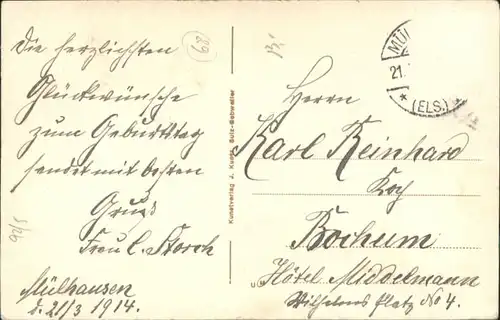 Die herzlichsten
Glückwünsche
zum Geburtstag
sendet mit besten
Gruß
Frau C. Storch
Mülhausen
d. 21/3 1914.
68
Kunstverlag J. Sulz-Gebweiler
MÜL
21.
* (ELS.)
Herrn
Karl Reinhard
Koch
Bochum
Hôtel Middelmann
Wilhelms Platz No 4.